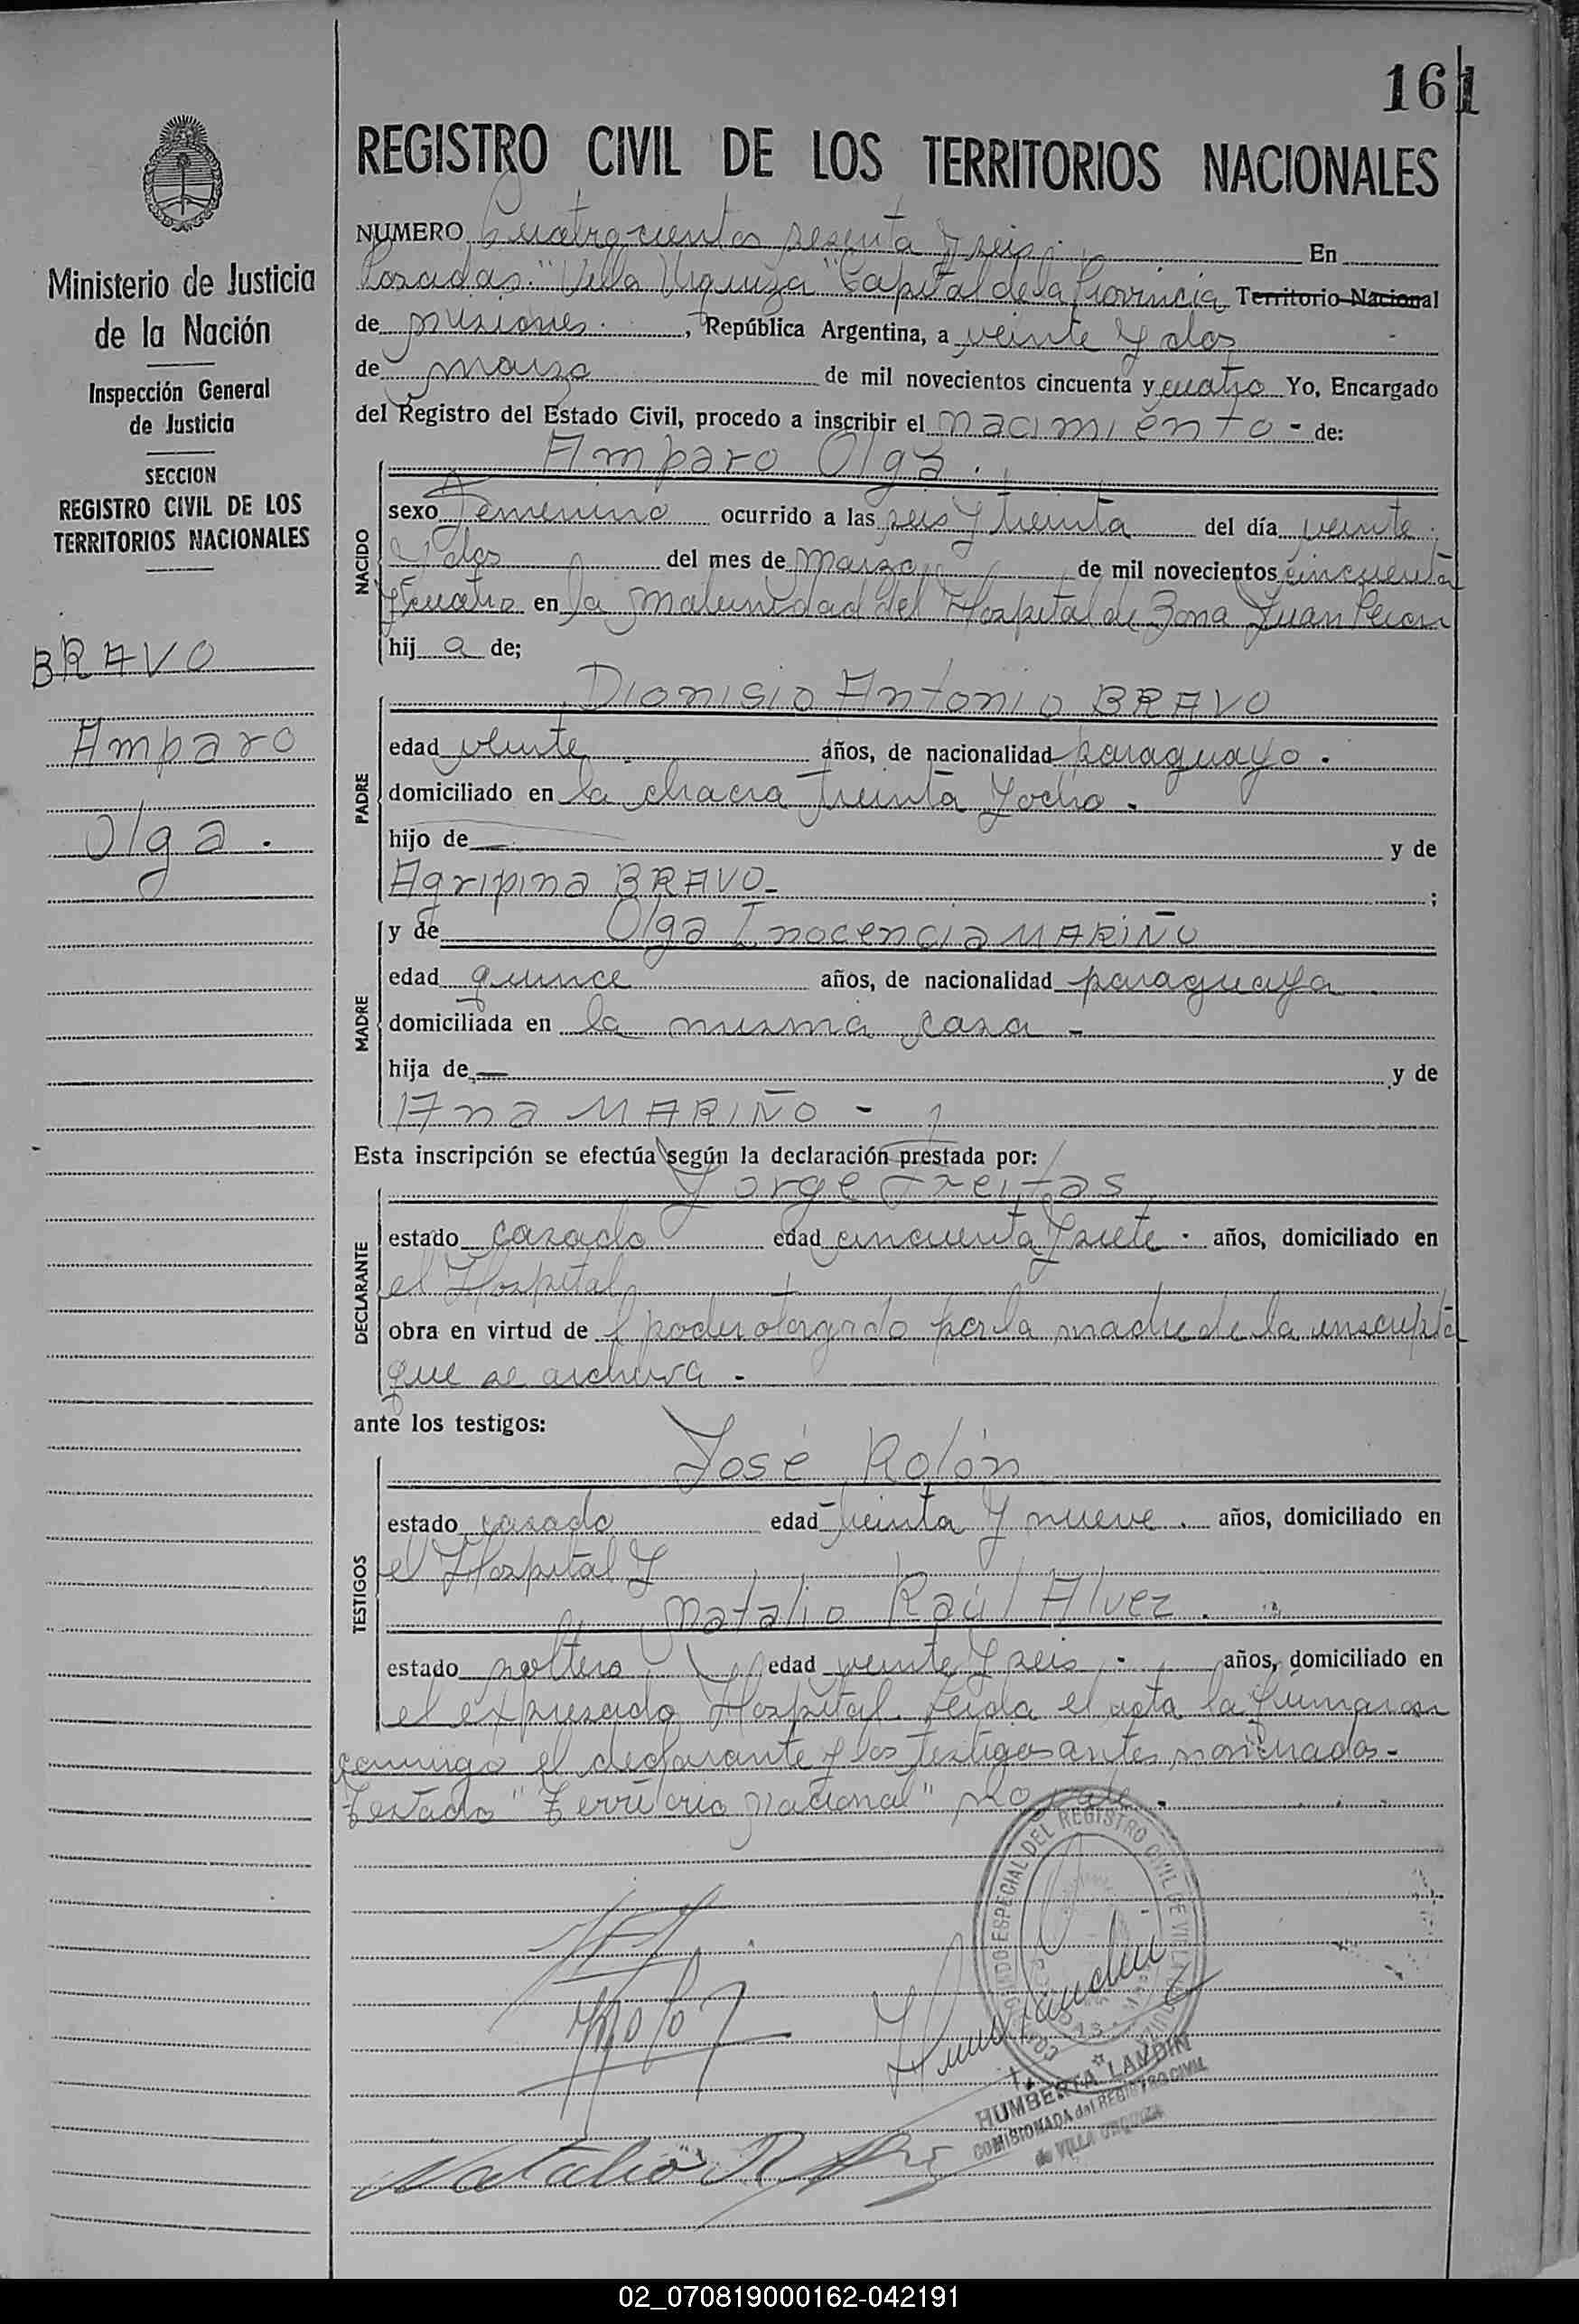 161
REGISTRO CIVIL DE LOS TERRITORIOS NACIONALES
Ministerio de Justicia
de la Nación
Inspección General
de Justicia
SECCION
REGISTRO CIVIL DE LOS
TERRITORIOS NACIONALES
BRAVO
Amparo
Olga.
NUMERO Cuatrocientos sesenta y seis. En
Posadas "Villa Urquiza" Capital de la Provincia Territorio Nacional
de Misiones., República Argentina, a veinte y dos
de marzo de mil novecientos cincuenta y cuatro Yo, Encargado
del Registro del Estado Civil, procedo a inscribir el nacimiento - de:
Amparo Olga.
NACIDO
sexo Femenino ocurrido a las seis y treinta del día veinte
y dos del mes de marzo de mil novecientos cincuenta
y cuatro en la Maternidad del Hospital de Zona Juan Peron
hij a de;
PADRE
Dionisio Antonio BRAVO
edad veinte años, de nacionalidad paraguayo.
domiciliado en la chacra treinta y ocho.
hijo de — y de
Agripina BRAVO- ;
MADRE
y de Olga Inocencia MARIÑO
edad quince años, de nacionalidad paraguaya
domiciliada en la misma casa -
hija de — y de
Ana MARIÑO -
Esta inscripción se efectúa según la declaración prestada por:
DECLARANTE
Jorge Freitas
estado casado edad cincuenta y siete. años, domiciliado en
el Hospital
obra en virtud de l poder otorgado por la madre de la inscripta
que se archiva -
ante los testigos:
TESTIGOS
José Rolón
estado casado edad treinta y nueve. años, domiciliado en
el Hospital y
Natalio Raúl Alvez.
estado soltero edad veinte y seis - años, domiciliado en
el expresado Hospital. Leida el acta la firmaron
conmigo el declarante y los testigos antes nombrados-
Testado "Territorio Nacional" no vale.
DEL REGISTRO CIVIL DE VILLA
HUMBERTA LANDIN
COMISIONADA del REGISTRO CIVIL
de VILLA URQUIZA
Natalio R.
02_070819000162-042191